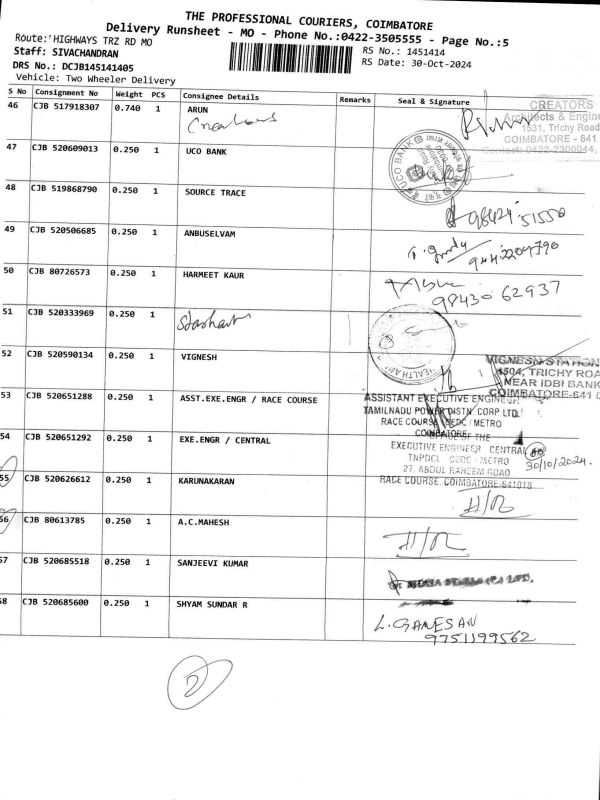 THE PROFESSIONAL COURIERS, COIMBATORE
Delivery Runsheet - MO - Phone No.:0422-3505555 - Page No.:5
Route:'HIGHWAYS TRZ RD MO
RS No.: 1451414
Staff: SIVACHANDRAN
RS Date: 30-Oct-2024
DRS No.: DCJB145141405
Vehicle: Two Wheeler Delivery
S No Consignment No Weight PCS Consignee Details Remarks Seal & Signature
46 CJB 517918307 0.740 1 ARUN
CREATORS
Architects & Engine
1531, Trichy Road
COIMBATORE - 641
Contact: 0422-2300044,
47 CJB 520609013 0.250 1 UCO BANK
UCO BANK
48 CJB 519868790 0.250 1 SOURCE TRACE
98424 51550
49 CJB 520506685 0.250 1 ANBUSELVAM
9442204790
50 CJB 80726573 0.250 1 HARMEET KAUR
98430 62937
51 CJB 520333969 0.250 1
52 CJB 520590134 0.250 1 VIGNESH
VIGNESH STATION
1504, TRICHY ROA
NEAR IDBI BANK
COIMBATORE-641 0
53 CJB 520651288 0.250 1 ASST.EXE.ENGR / RACE COURSE
ASSISTANT EXECUTIVE ENGINEER
TAMILNADU POWER DISTN. CORP LTD.
RACE COURSE / CEDC / METRO
COIMBATORE
54 CJB 520651292 0.250 1 EXE.ENGR / CENTRAL
OFFICE OF THE
EXECUTIVE ENGINEER CENTRAL
TNPDCL CEDC / METRO
27. ABDUL RAHEEM ROAD
RACE COURSE. COIMBATORE-641018
30/10/2024.
55 CJB 520626612 0.250 1 KARUNAKARAN
56 CJB 80613785 0.250 1 A.C.MAHESH
57 CJB 520685518 0.250 1 SANJEEVI KUMAR
58 CJB 520685600 0.250 1 SHYAM SUNDAR R
L. GANESAN
9751199562
2